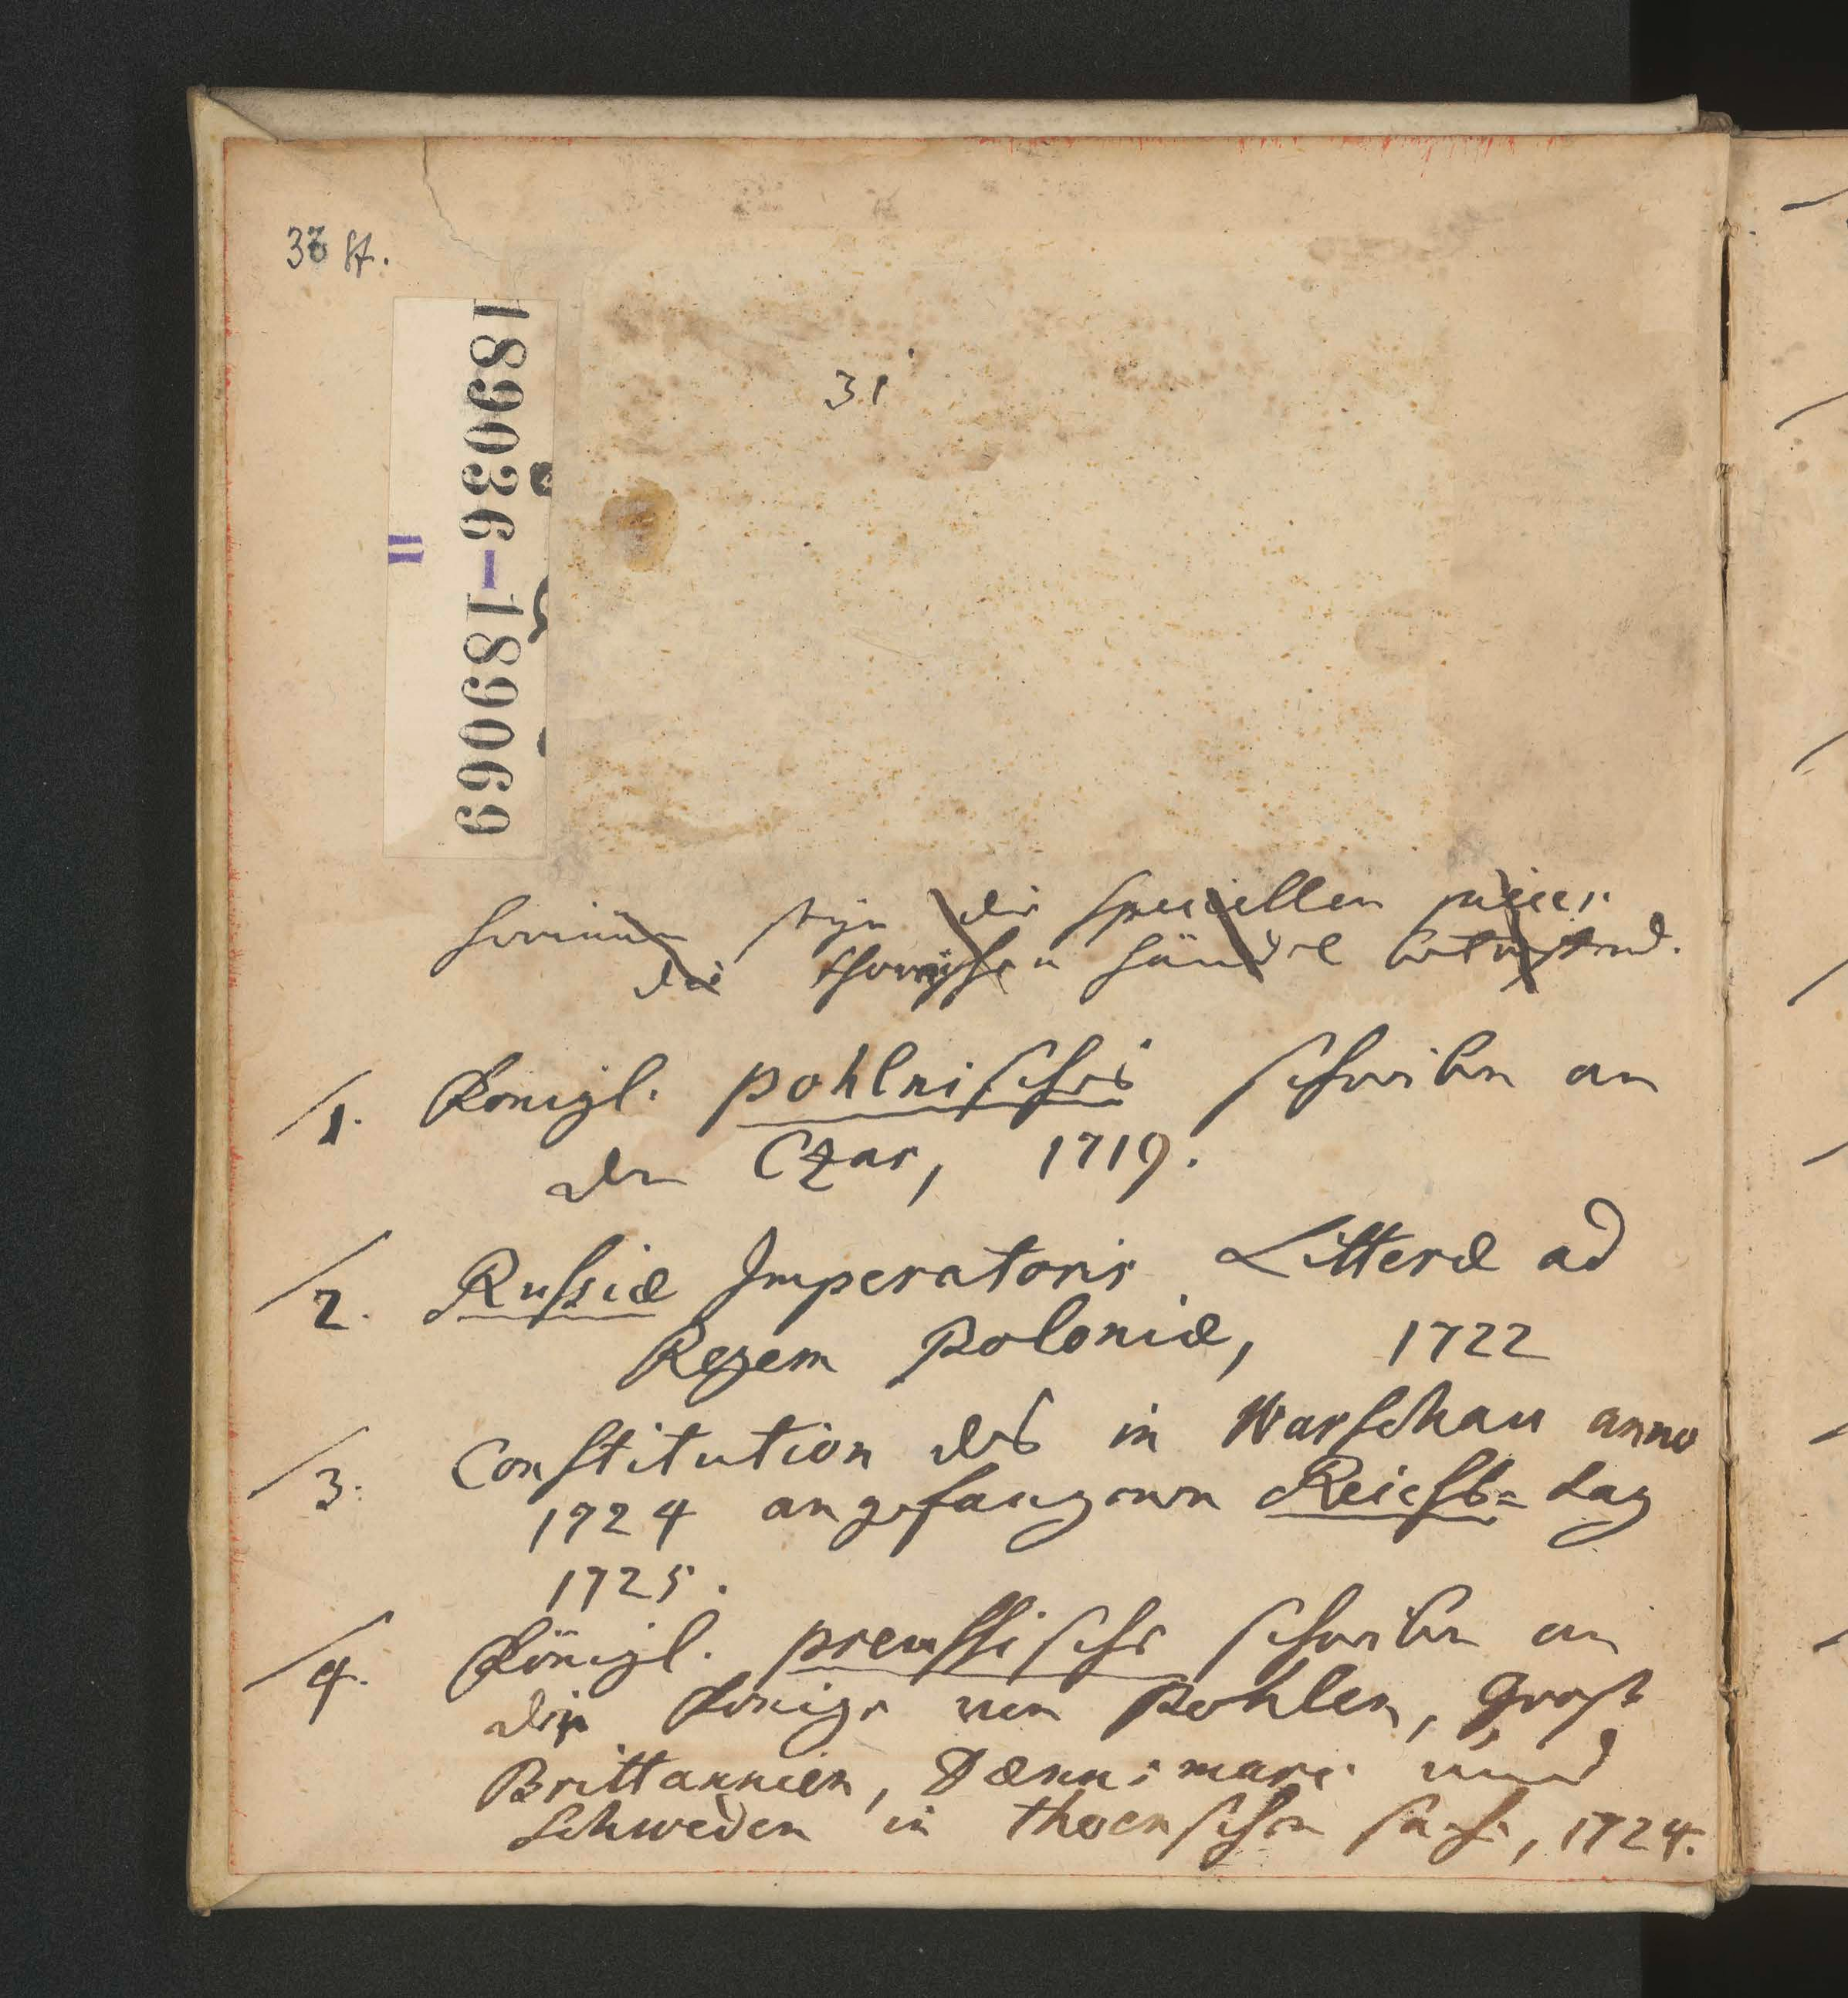 33 St.
189036-189069
II
31
hierinnen seyn die speciellen
die thornischen Händel betreffend.
1. Königl. pohlnisches schreiben an
den Czar, 1719.
2. Russiæ Imperatoris Litteræ ad
Regem Poloniæ, 1722
3. Constitution des in Warschau anno
1724 angefangenen Reichs= tag
1725.
4. Königl. preussische schreiben an
die Könige von Pohlen, Groß
Brittannien, Dænnemarc und
Schweden in thornschen sache, 1724.